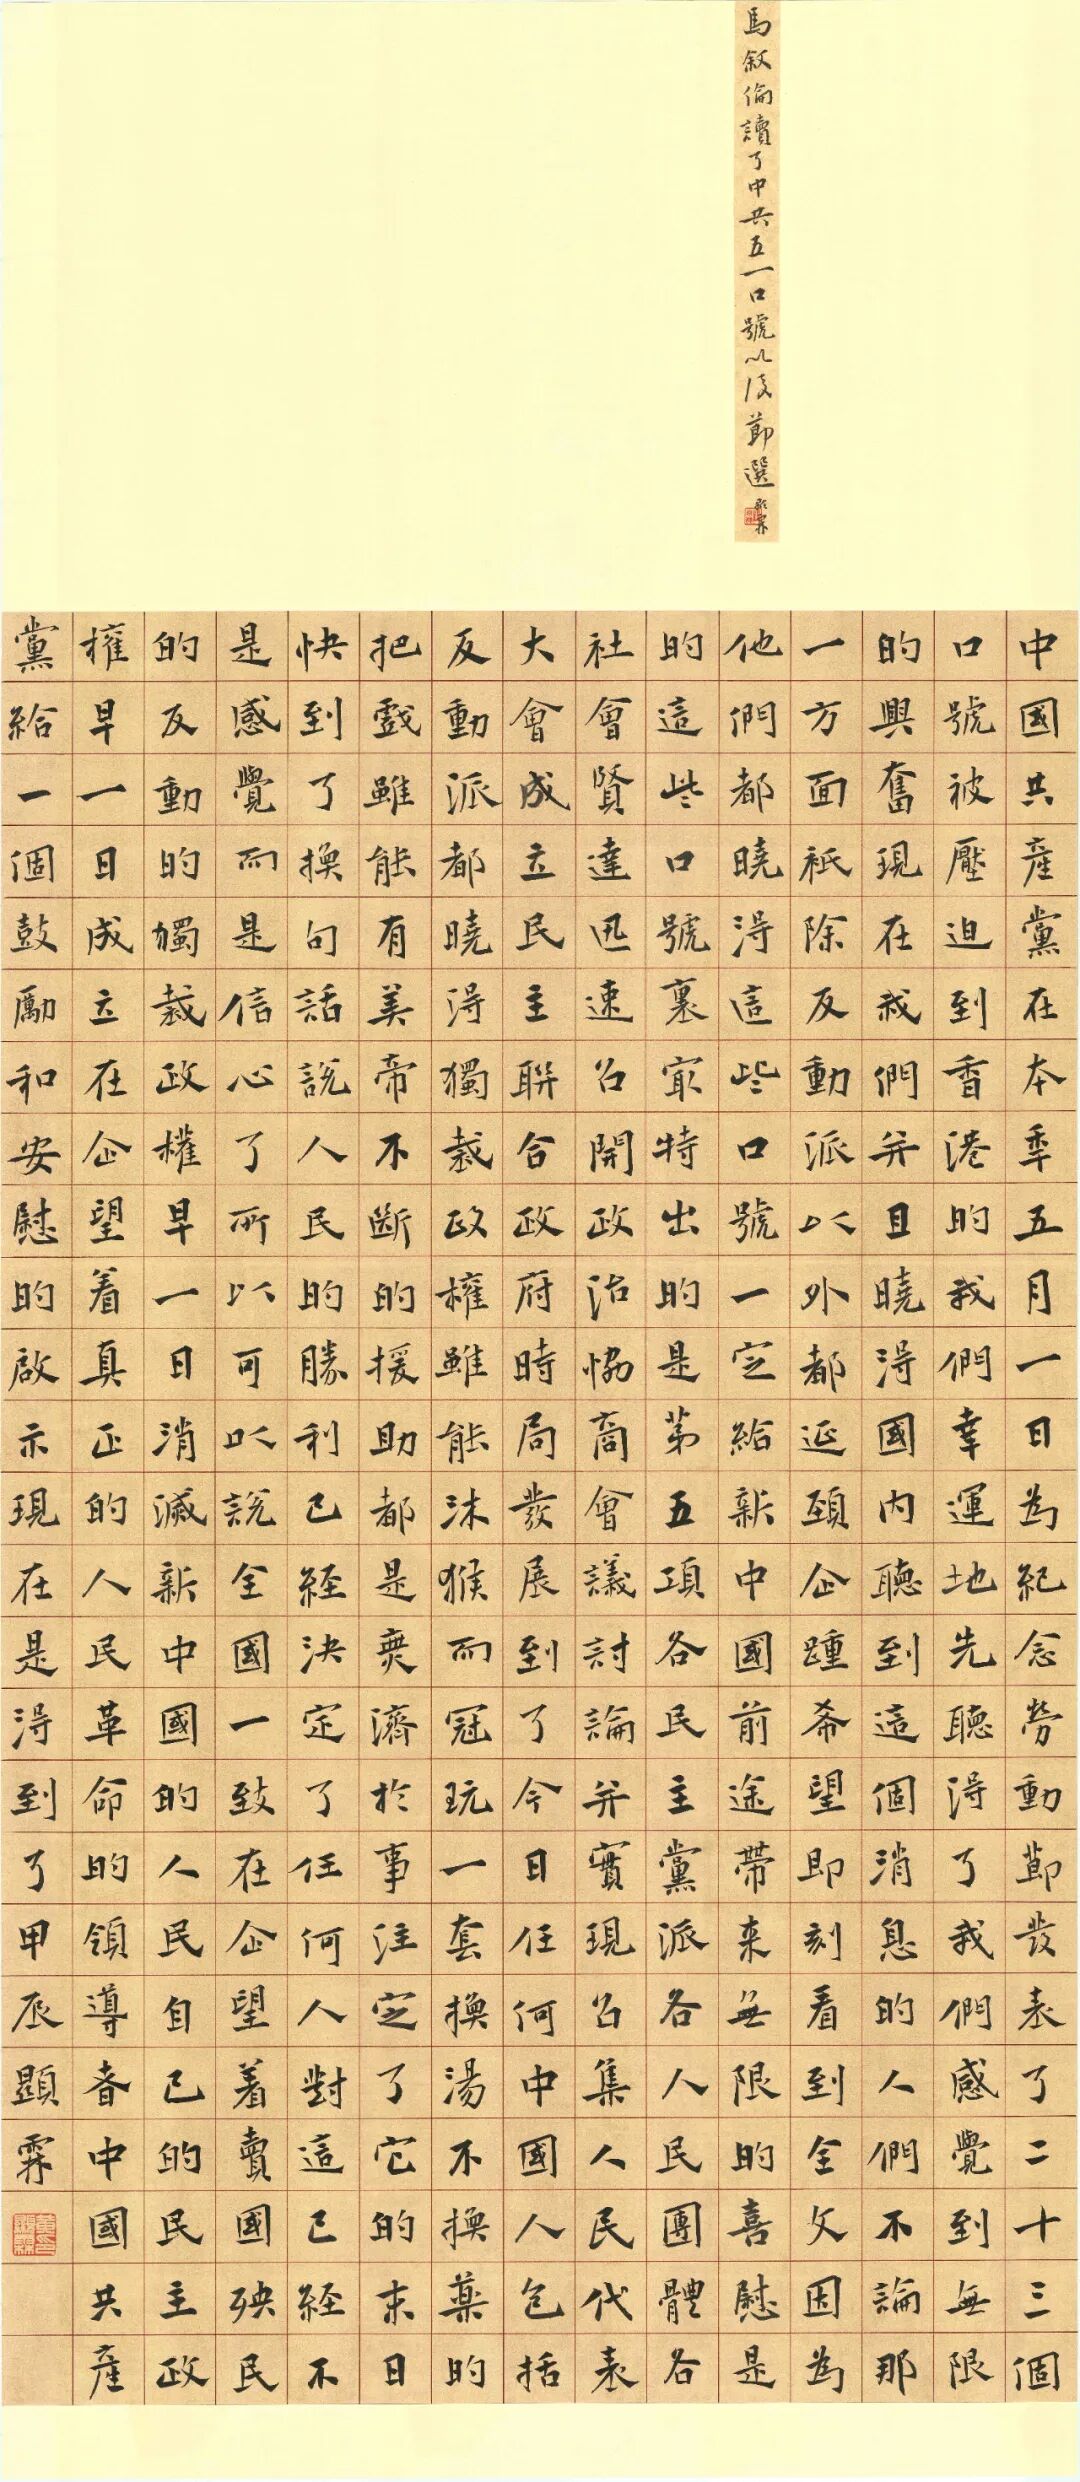 馬敘倫讀了中共五一口號以後節選 顯霖
中國共產黨在本秊五月一日為紀念勞動節發表了二十三個
口號被壓迫到香港的我們幸運地先聽得了我們感覺到無限
的興奮現在我們并且曉得國內聽到這個消息的人們不論那
一方面祇除反動派以外都延頸企踵希望即刻看到全文因為
他們都曉得這些口號一定給新中國前途帶來無限的喜慰是
的這些口號裏最特出的是第五項各民主黨派各人民團體各
社會賢達迅速召開政治協商會議討論并實現召集人民代表
大會成立民主聯合政府時局發展到了今日任何中國人包括
反動派都曉得獨裁政權雖能沐猴而冠玩一套換湯不換藥的
把戲雖能有美帝不斷的援助都是無濟於事注定了它的末日
快到了換句話說人民的勝利已經決定了任何人對這已經不
是感覺而是信心了所以可以說全國一致在企望着賣國殃民
的反動的獨裁政權早一日消滅新中國的人民自己的民主政
權早一日成立在企望着真正的人民革命的領導者中國共產
黨給一個鼓勵和安慰的啟示現在是得到了甲辰顯霖